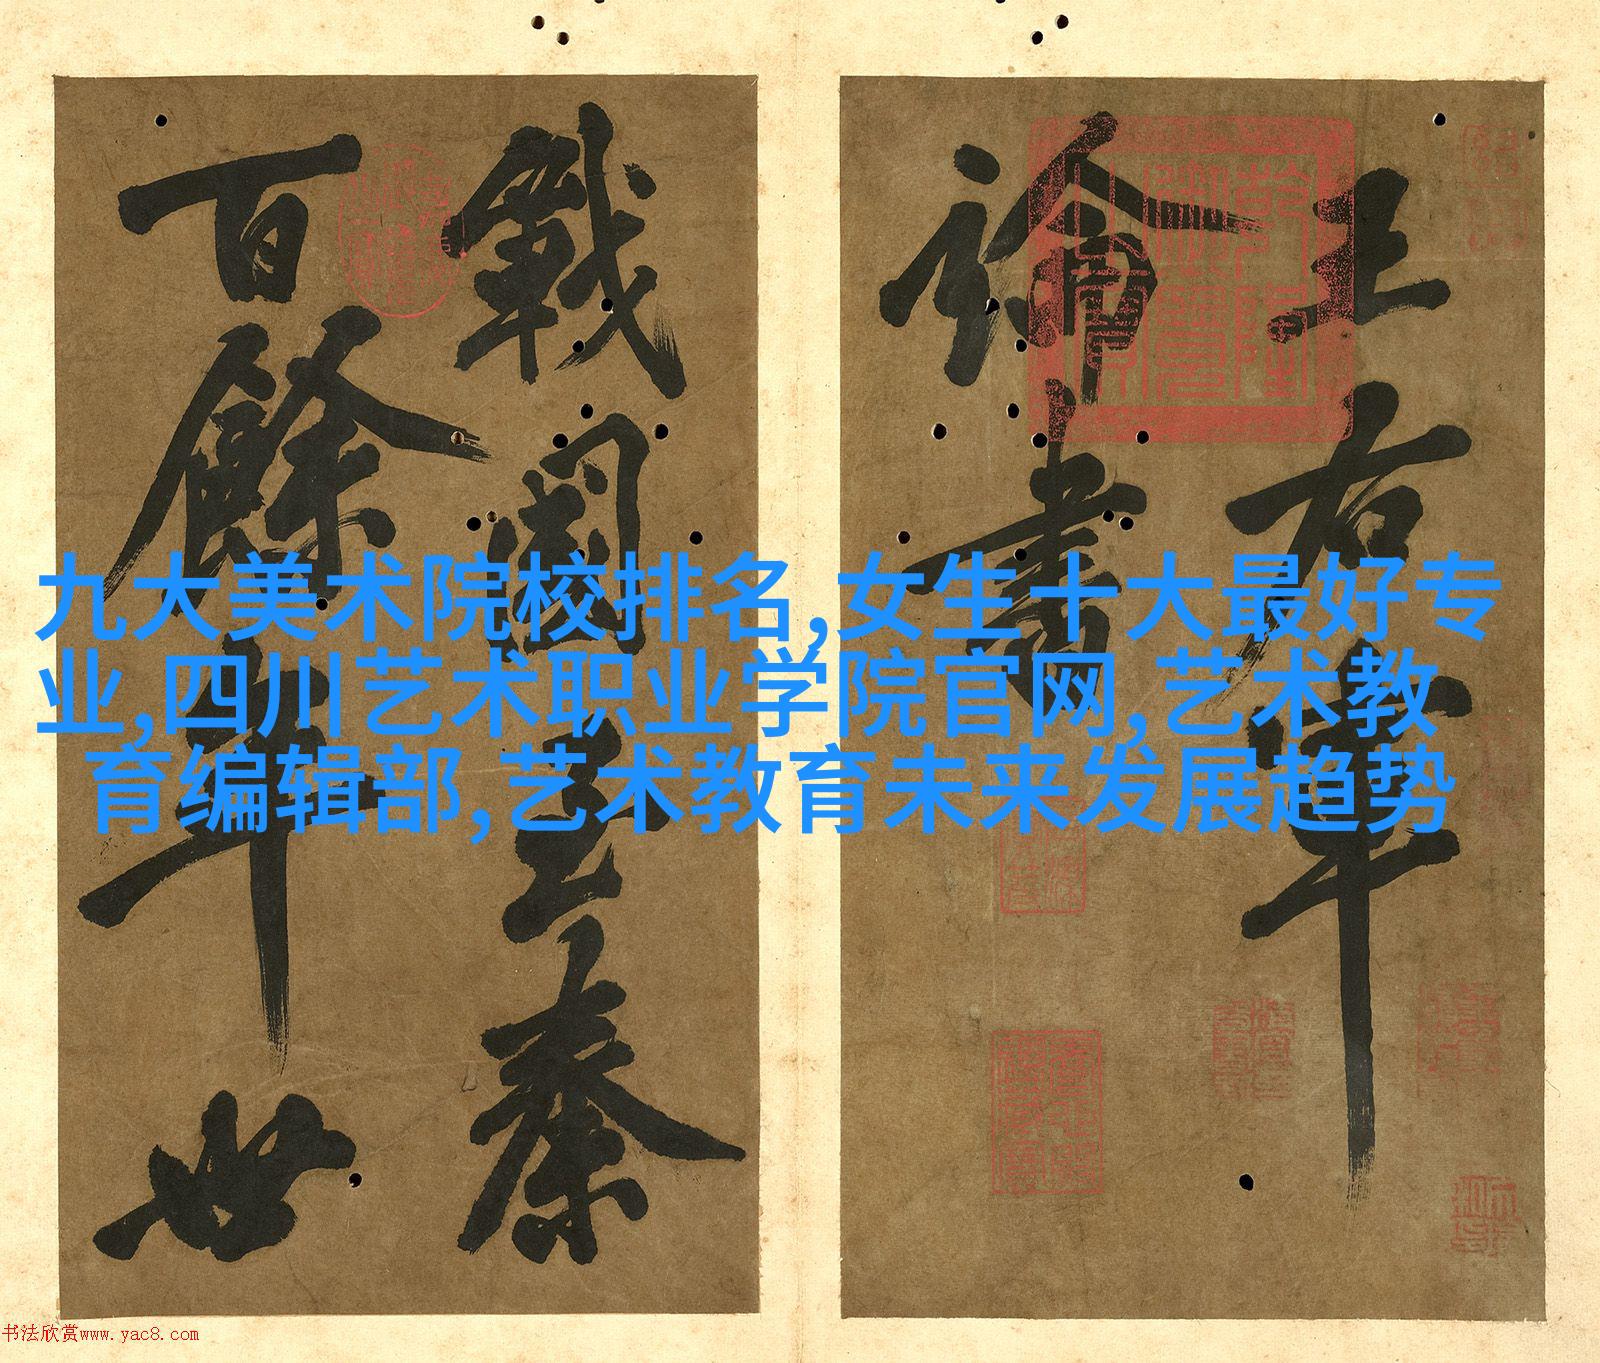 王右軍
論書
戰國至秦
百餘年世
九大美术院校排名,女生十大最好专
业,四川艺术职业学院官网,艺术教
育编辑部,艺术教育未来发展趋势
乾隆御覽之寶
书法欣赏www.yac8.com